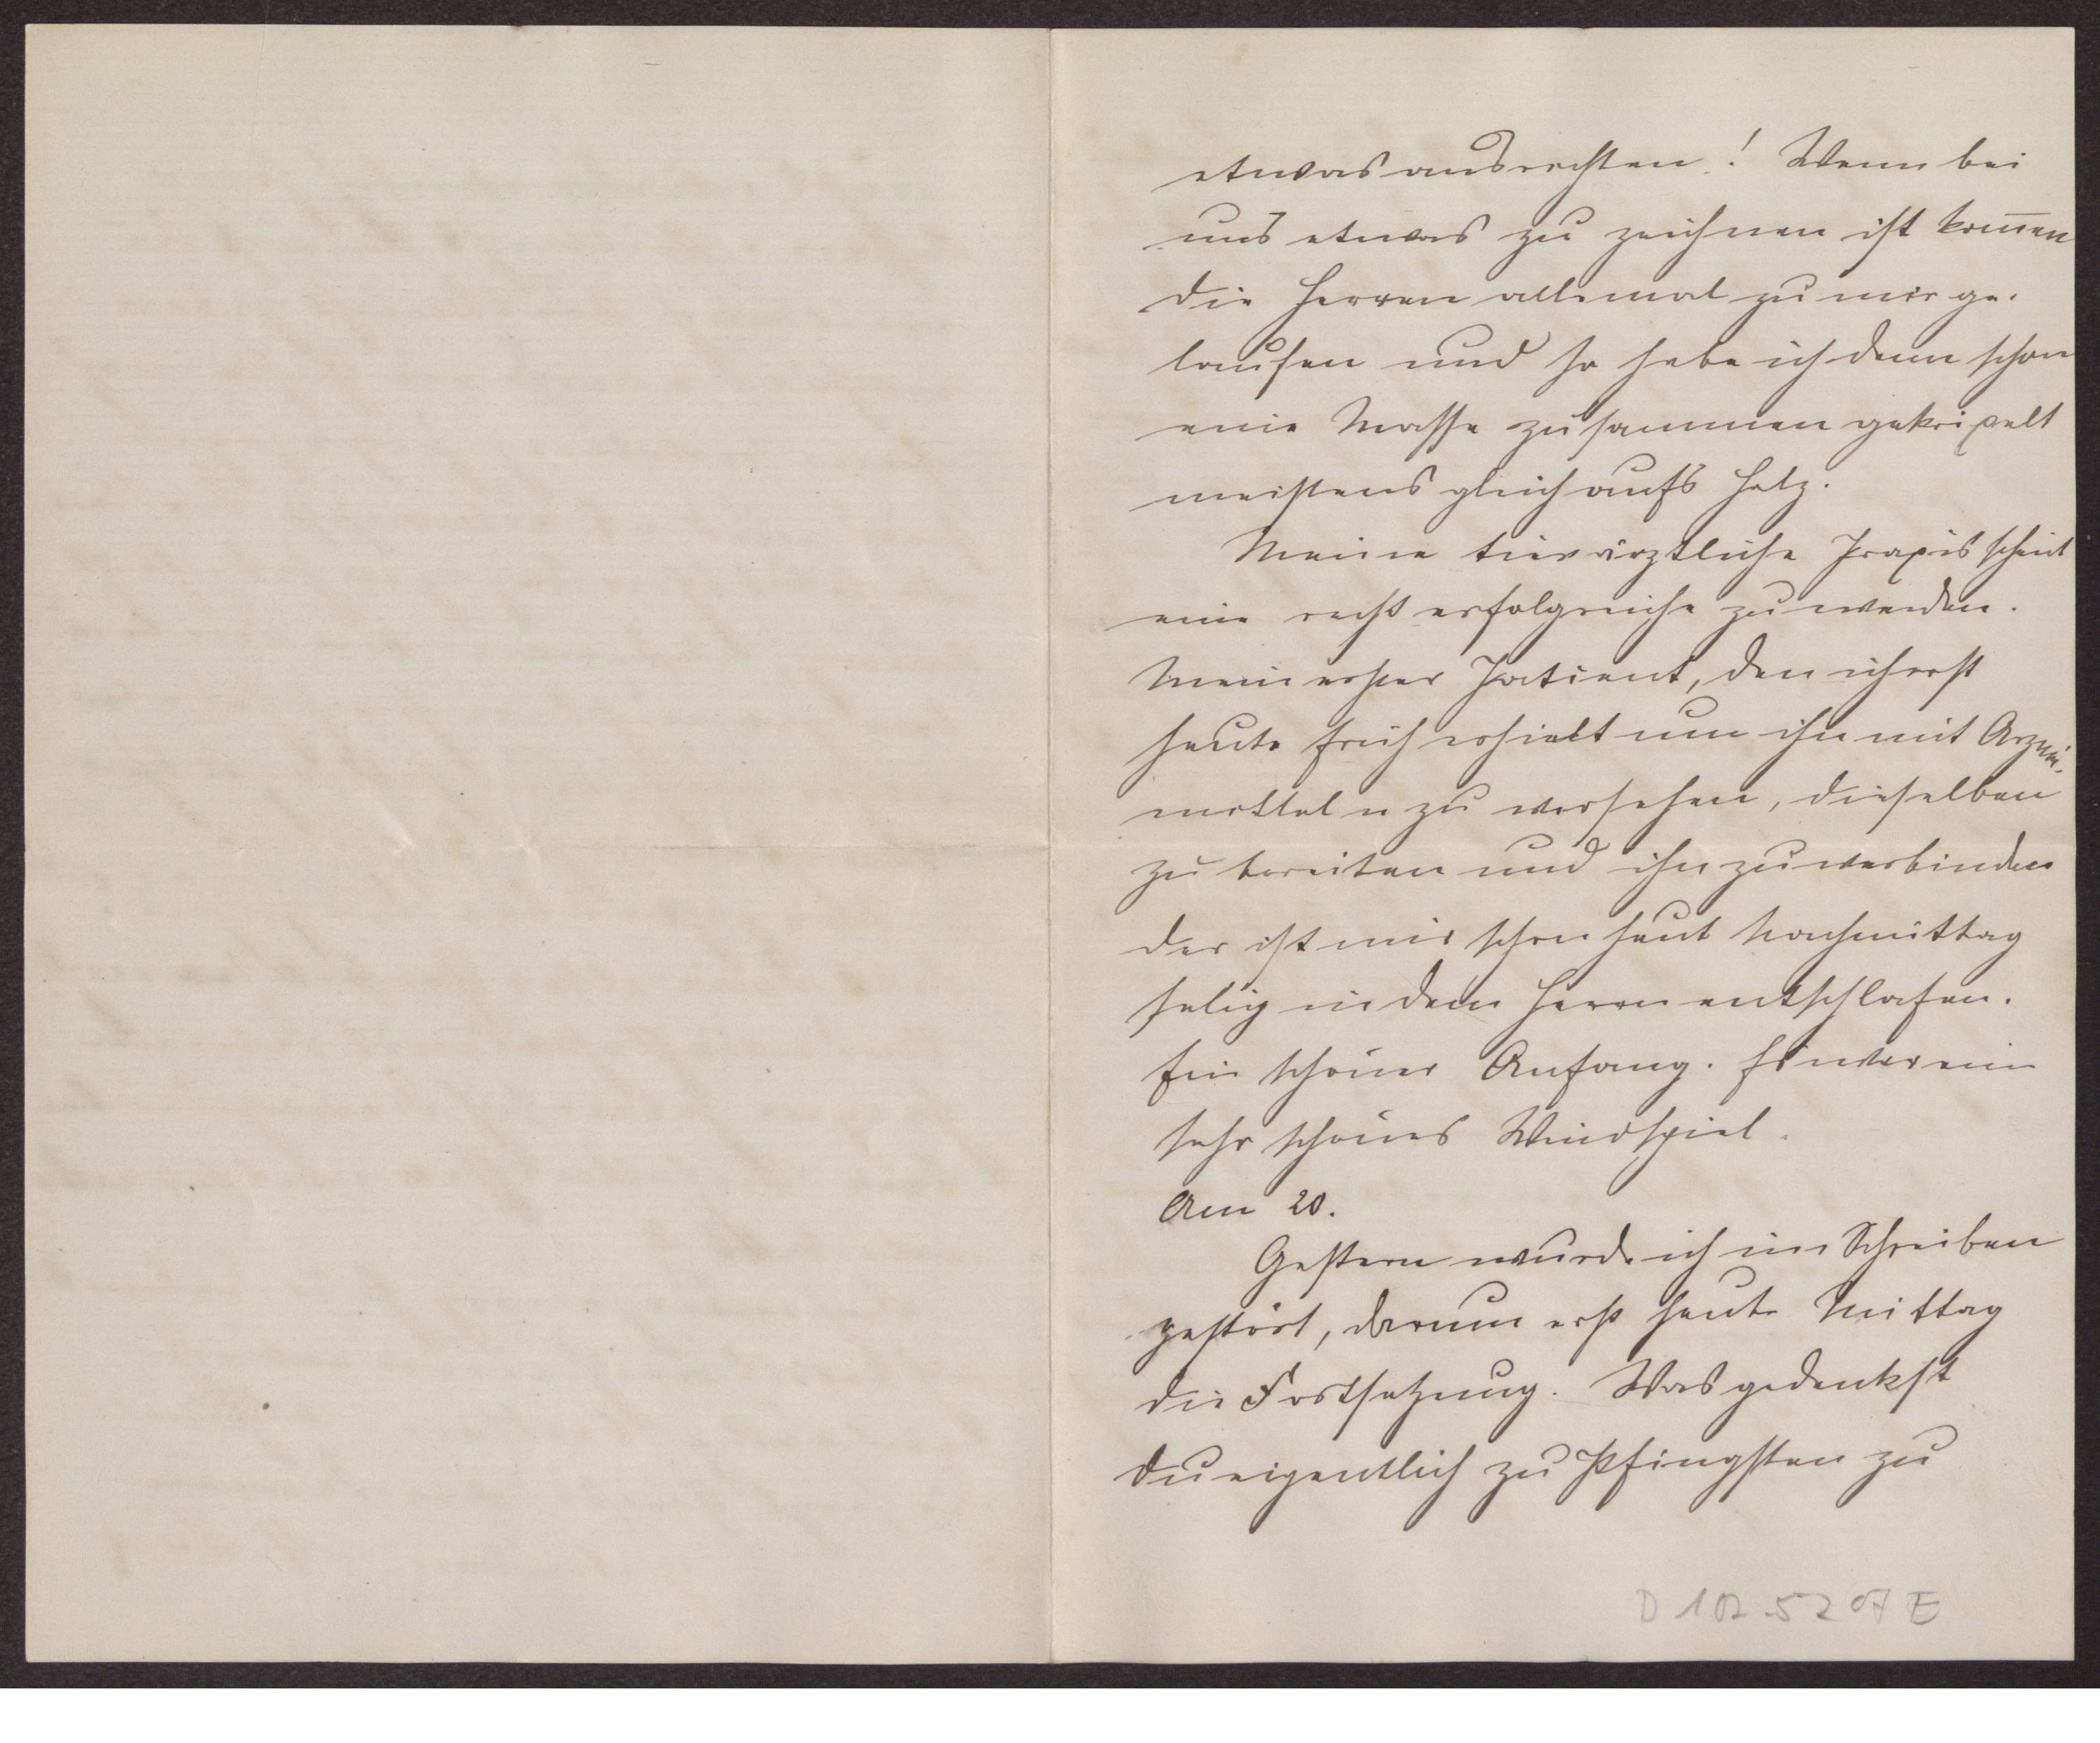 etwas ausrichten! Wenn bei
uns etwas zu zeichnen ist kom̅en
die Herren allemal zu mir ge-
laufen und so habe ich denn schon
eine Masse zusammen gekripelt
meistens gleich aufs Holz.
Meine tierärztliche Praxis scheint
eine recht erfolgreiche zu werden.
Mein erster Patient, den ich erst
heute früh erhielt um ihn mit Arznei-
mitteln zu versehen, dieselben
zu bereiten und ihn zu verbinden
der ist mir schon heut Nachmittag
selig in dem Herrn entschlafen.
Ein schöner Anfang. Es war ein
sehr schönes Windspiel.
Am 20.
Gestern wurde ich im Schreiben
gestört, darum erst heute Mittag
die Fortsetzung. Was gedenkst
du eigentlich zu Pfingsten zu
D 102 5207 E